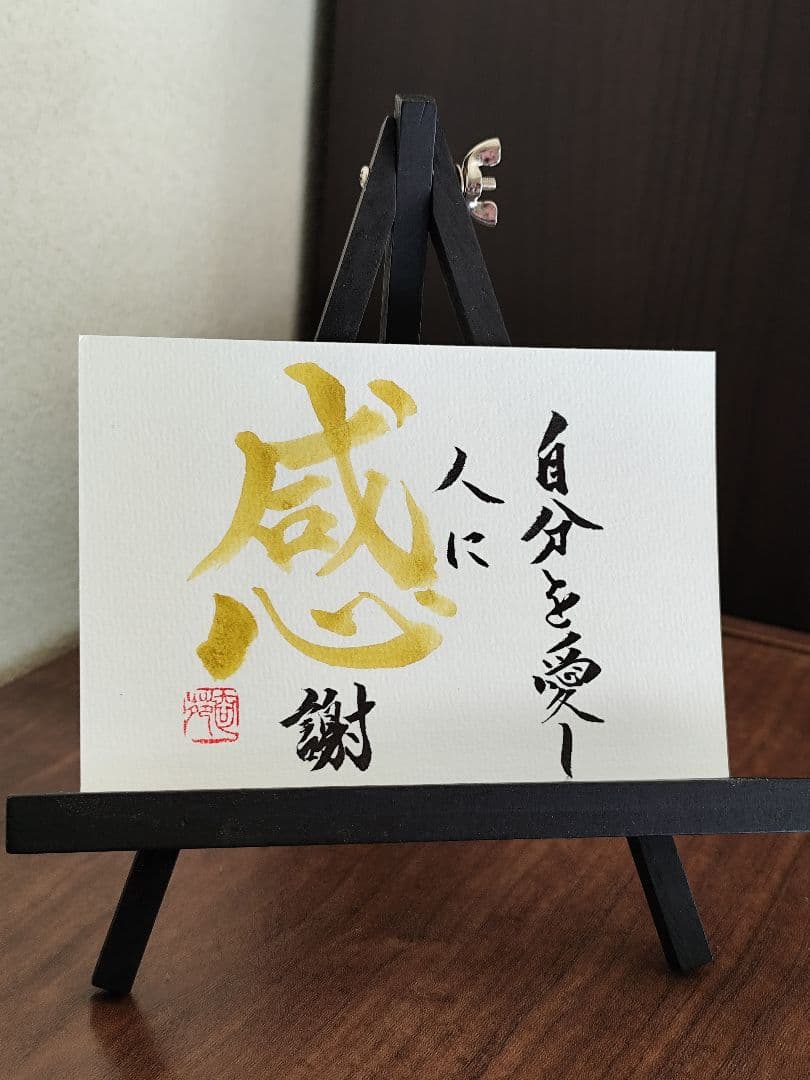 自分を愛し
人に
感謝